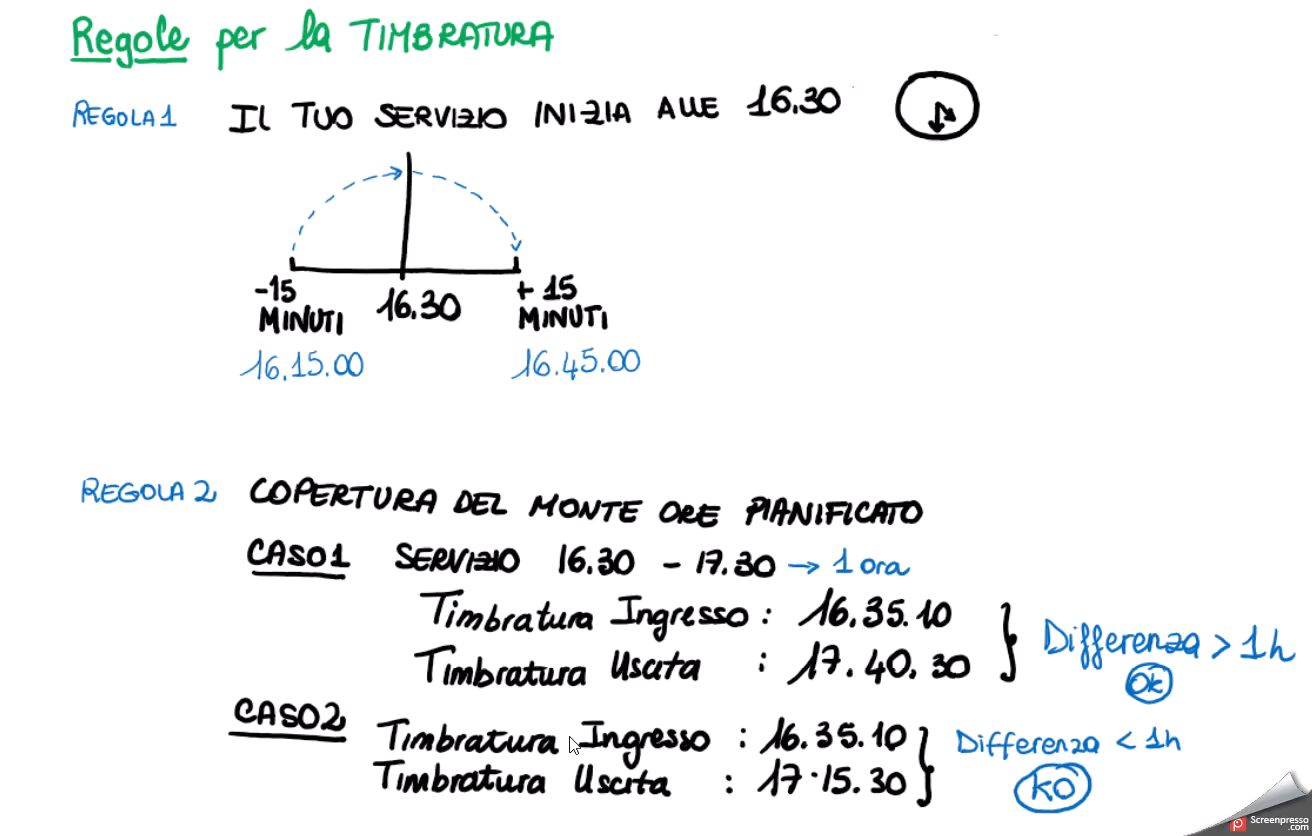 Regole per la TIMBRATURA
REGOLA 1 IL TUO SERVIZIO INIZIA ALLE 16.30
-15 MINUTI 16.30 + 15 MINUTI
16.15.00 16.45.00
REGOLA 2 COPERTURA DEL MONTE ORE PIANIFICATO
CASO1 SERVIZIO 16.30 - 17.30 → 1 ora
Timbratura Ingresso : 16.35.10
Timbratura Uscita : 17.40.30
} Differenza > 1h
OK
CASO2 Timbratura Ingresso : 16.35.10
Timbratura Uscita : 17.15.30
} Differenza < 1h
KO
Screenpresso
.com